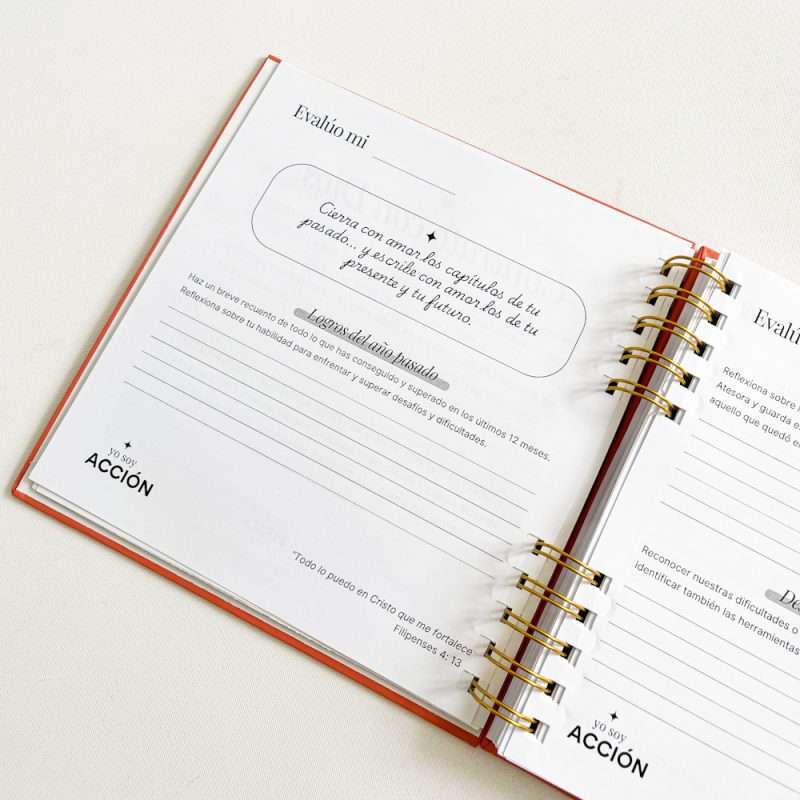 Evalúo mi
Cierra con amor los capítulos de tu
pasado... y escribe con amor los de tu
presente y tu futuro.
Logros del año pasado
Haz un breve recuento de todo lo que has conseguido y superado en los últimos 12 meses.
Reflexiona sobre tu habilidad para enfrentar y superar desafíos y dificultades.
"Todo lo puedo en Cristo que me fortalece
Filipenses 4: 13
yo soy
ACCIÓN
Reflexiona sobre
Atesora y guarda
aquello que quedó
Reconocer nuestras dificultades o
identificar también las herramientas
yo soy
ACCIÓN